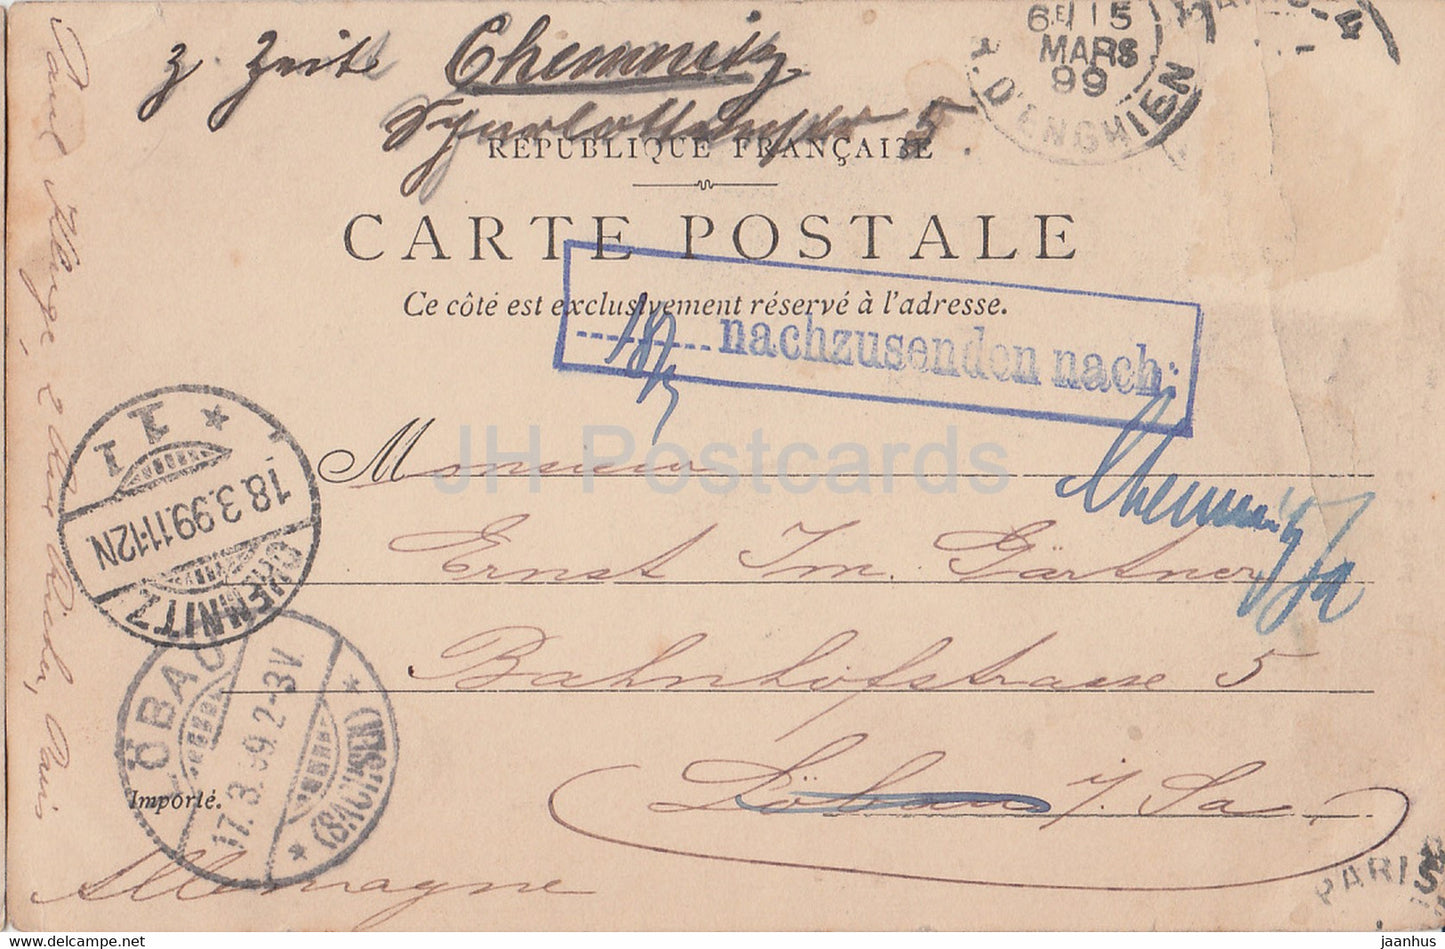 z. Zeit Chemnitz
5.
6E 15
MARS
99
R. D'ENGHIEN
RÉPUBLIQUE FRANÇAISE
CARTE POSTALE
Ce côté est exclusivement réservé à l'adresse.
18/3 nachzusenden nach:
Chemnitz i/Sa
Monsieur
Ernst Im. Gärtner
Bahnhofstrasse 5
Löbau i/Sa.
Allemagne
Importé.
CHEMNITZ
18.3.99.11-12N.
LÖBAU
17.3.99.2-3V.
(SACHSEN)
PARIS
Paul Kluge, 2 Rue Richer, Paris
JH Postcards
jaanhus | delcampe.net